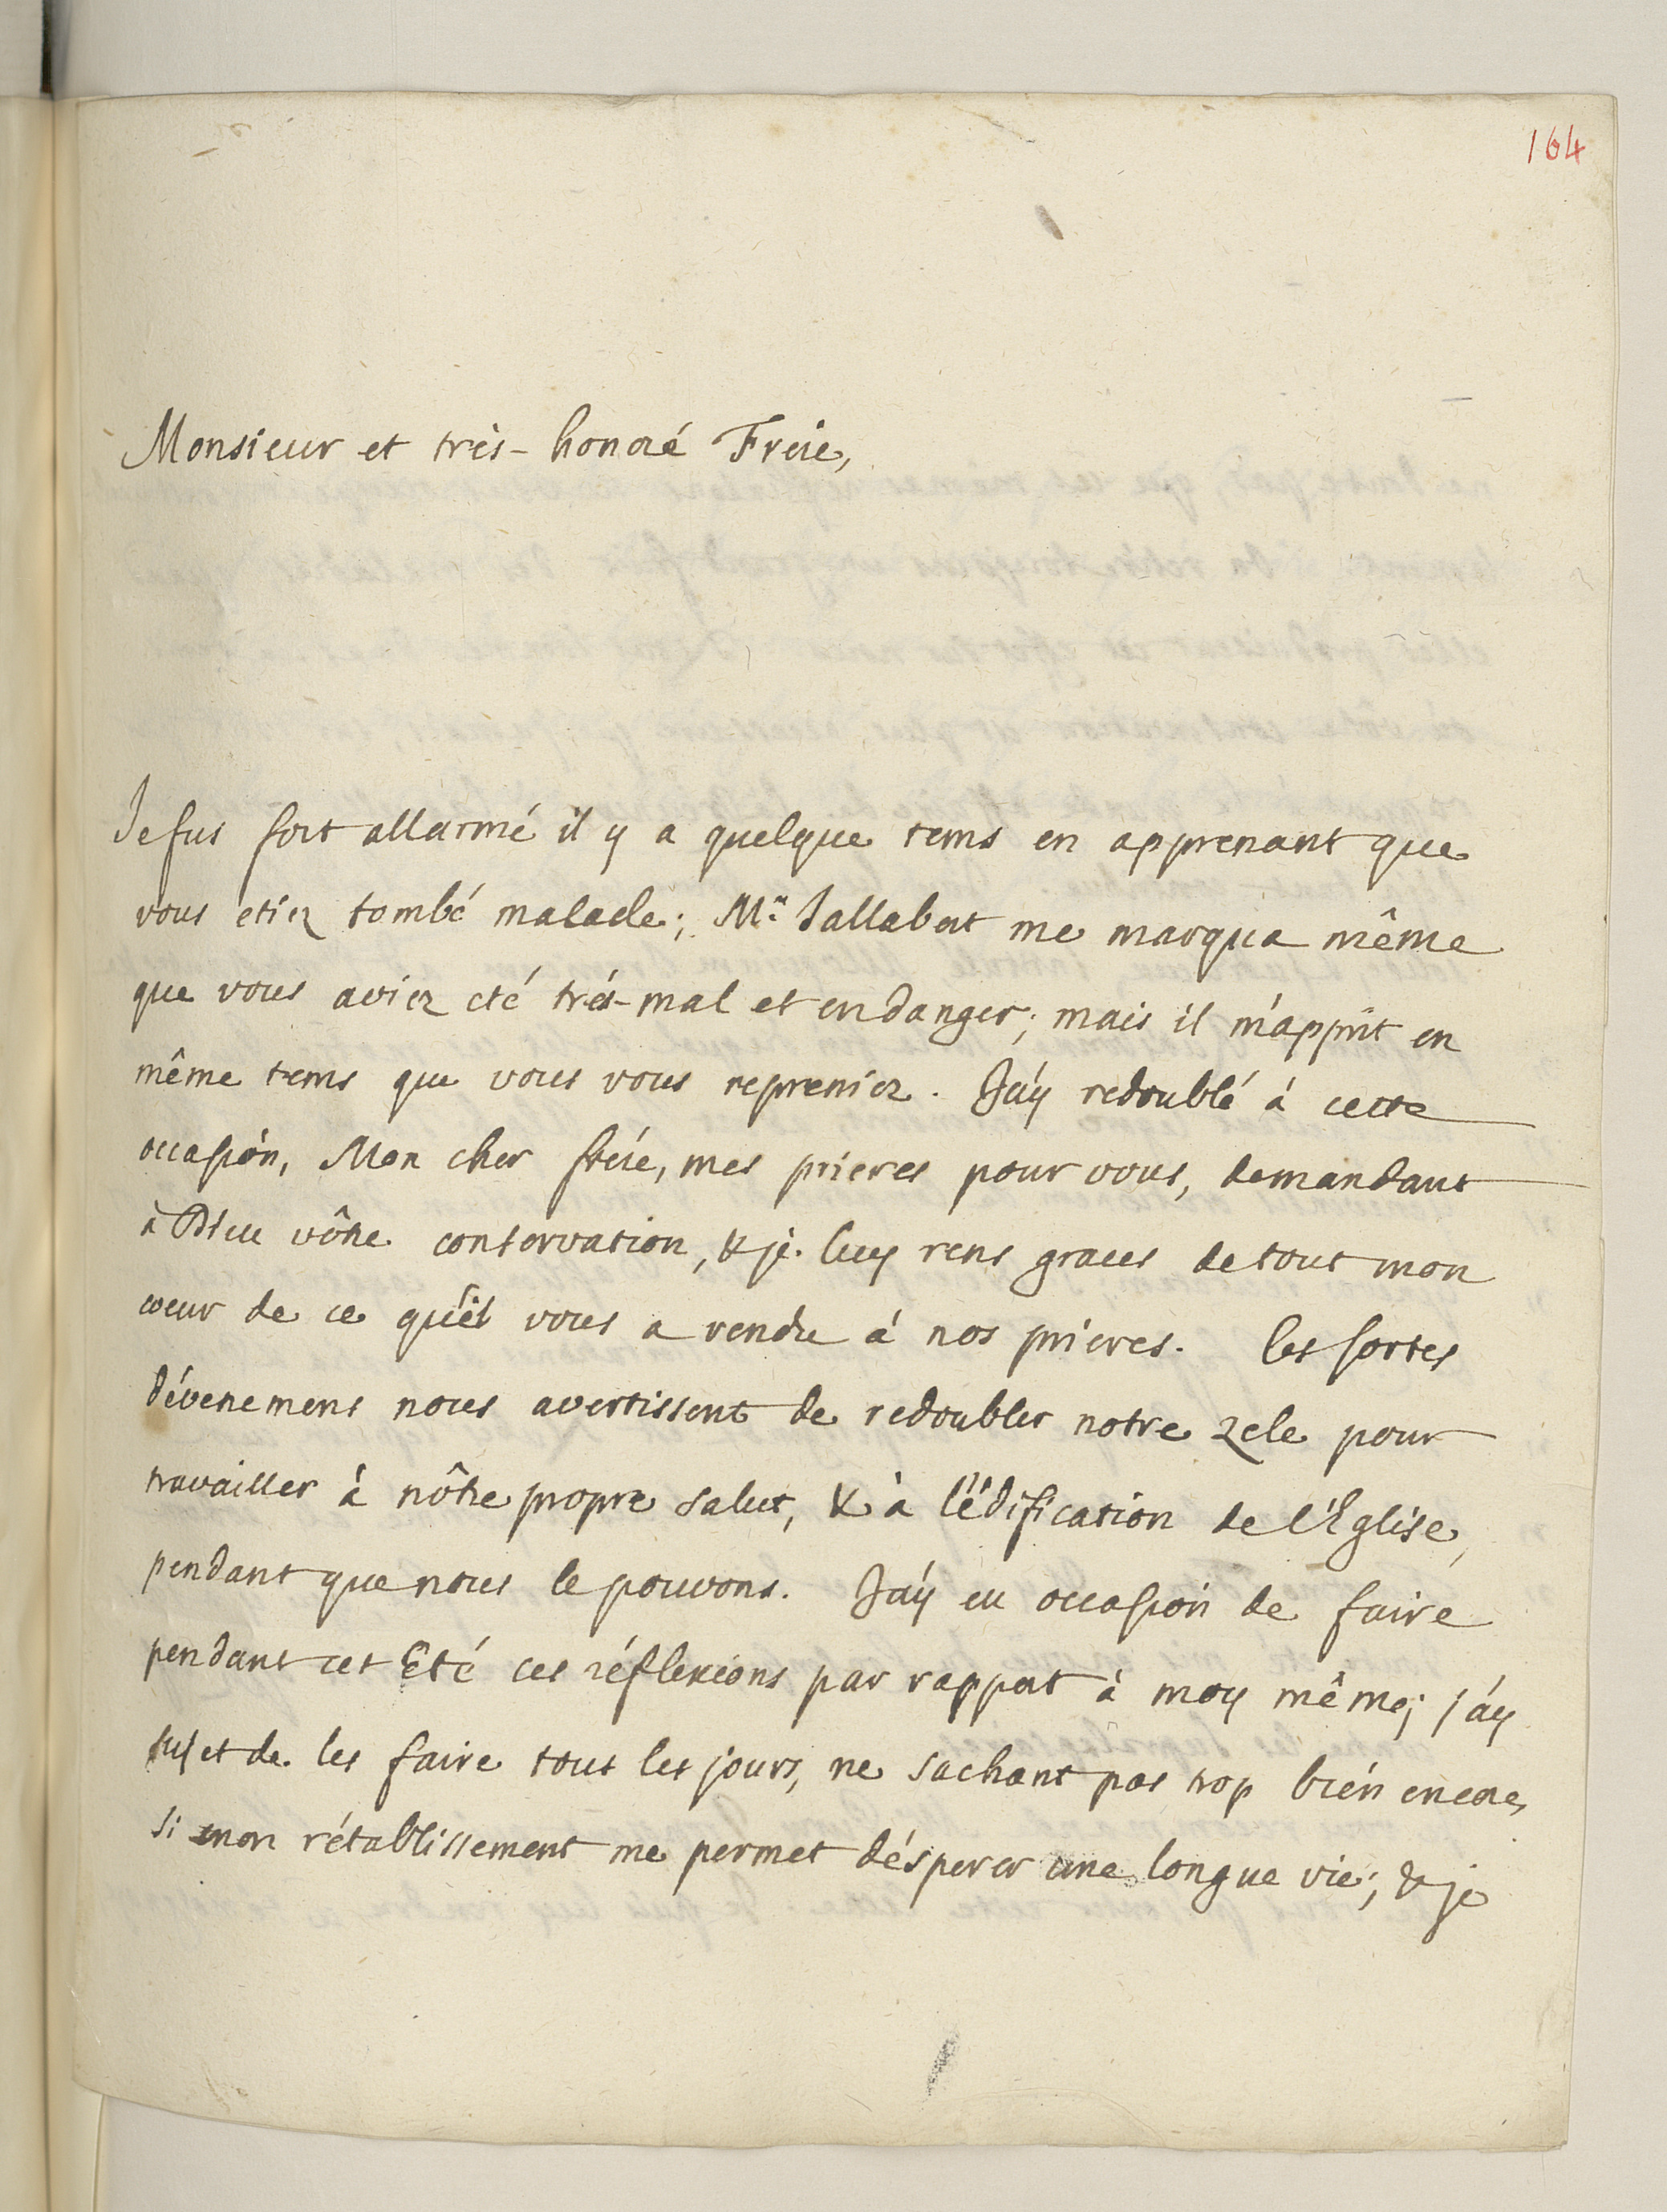 164
Monsieur et très-honoré Frere,
Je fus fort allarmé il y a quelque tems en apprenant que
vous etiez tombé malade; Mr. Jallabert me marqua même
que vous aviez eté trés-mal et en danger; mais il m'apprit en
même tems que vous vous repreniez. J'ay redoublé à cette
occasion, Mon cher frére, mes prieres pour vous, demandant
à Dieu vôtre conservation, & je luy rens graces de tout mon
coeur de ce qu'il vous a rendu à nos prieres. Ces sortes
d'évenemens nous avertissent de redoubler notre zele pour
travailler à nôtre propre salut, & à l'édification de l'Eglise,
pendant que nous le pouvons. J'ay eu occasion de faire
pendant cet Eté ces réflexions par rapport à moy même; j'ay
sujet de les faire tout les jours, ne sachant pas trop bien encore,
si mon rétablissement me permet d'ésperer une longue vie; & je